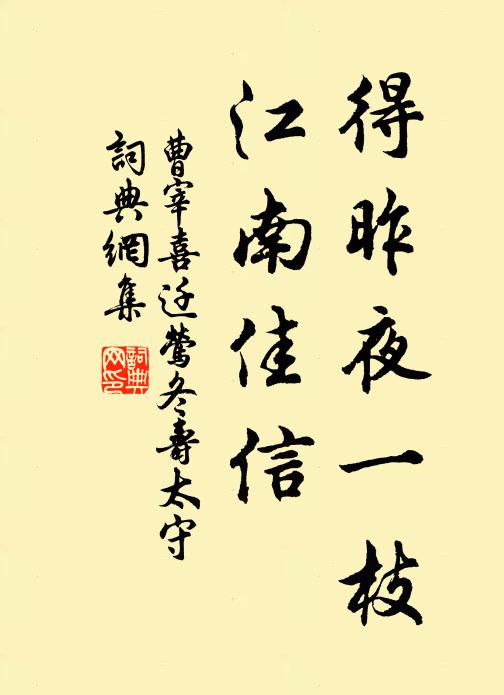 得昨夜一枝
江南佳信
曹宰喜迁莺冬寿太守
詞典網集
詞典网印